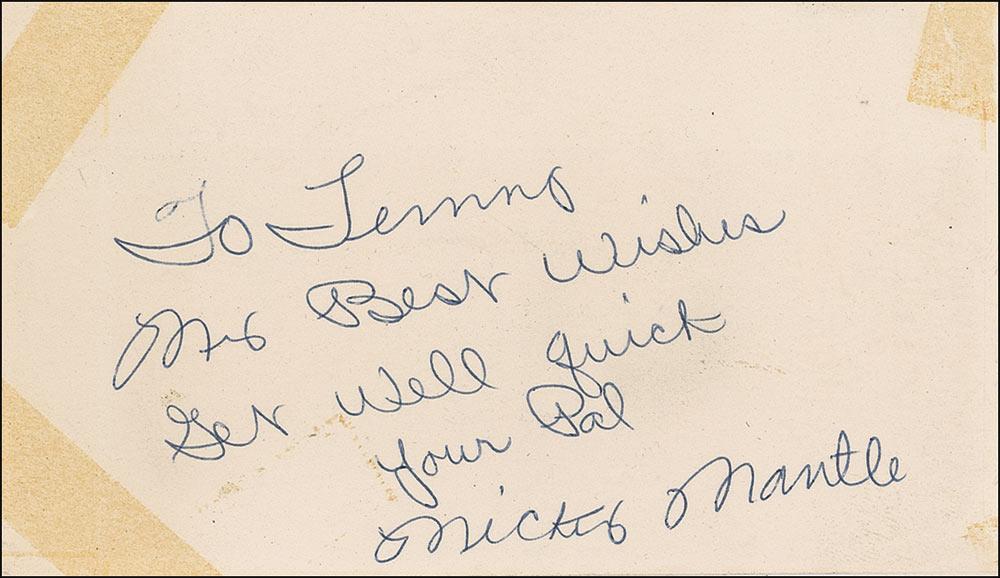 To
My Best Wishes
Get Well quick
your Pal
Mickey Mantle